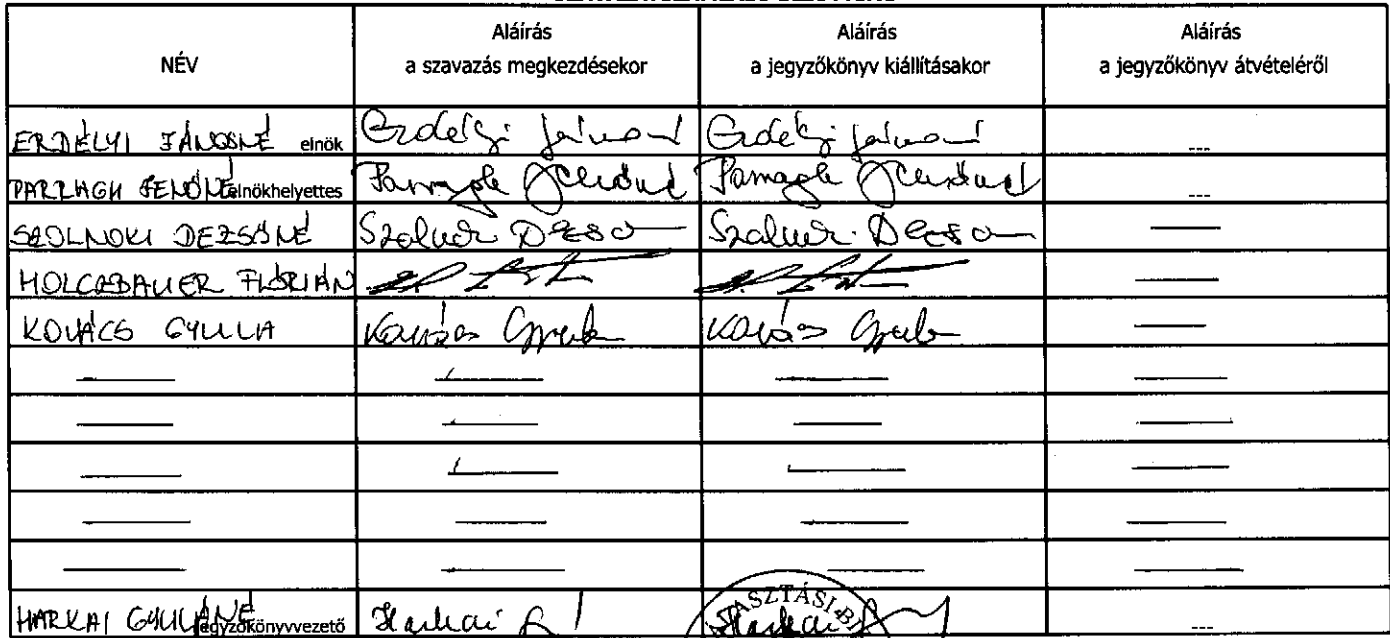 NÉV Aláírás a szavazás megkezdésekor Aláírás a jegyzőkönyv kiállításakor Aláírás a jegyzőkönyv átvételéről
ERDÉLYI JÁNOSNÉ elnök Erdélyi Jánosné Erdélyi Jánosné ---
PARRAGH JENŐNÉ elnökhelyettes Parragh Jenőné Parragh Jenőné ---
SZOLNOKI DEZSŐNÉ Szolnoki Dezső Szolnoki Dezső —
HOLCZBAUER FLÓRIÁN —
KOVÁCS GYULA Kovács Gyula Kovács Gyula —
— — — —
— — — —
— — — —
— — — —
— — — —
HARKAI GYULÁNÉ jegyzőkönyvvezető Harkai Harkai ---